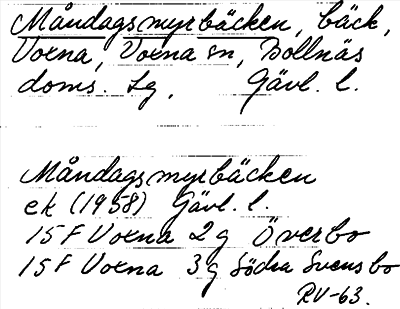 Måndagsmyrbäcken, bäck,
Voxna, Voxna sn, Bollnäs
doms. lg, Gävl. l.
Måndagsmyrbäcken
ek (1958) Gävl. l.
15 F Voxna 2 g Överbo
15 F Voxna 3 g Södra Svensbo
RV-63.